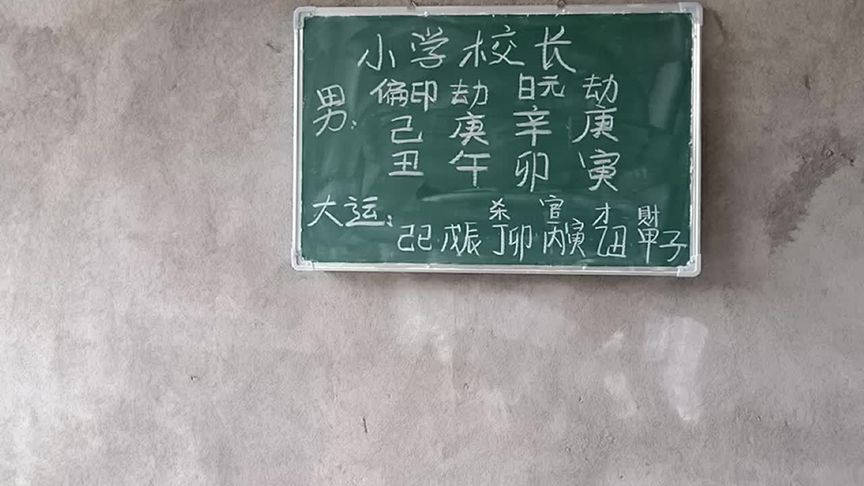 小学校长
偏印 劫 日元 劫
男: 己 庚 辛 庚
丑 午 卯 寅
杀 官 才 財
大运: 己巳 戊辰 丁卯 丙寅 乙丑 甲子